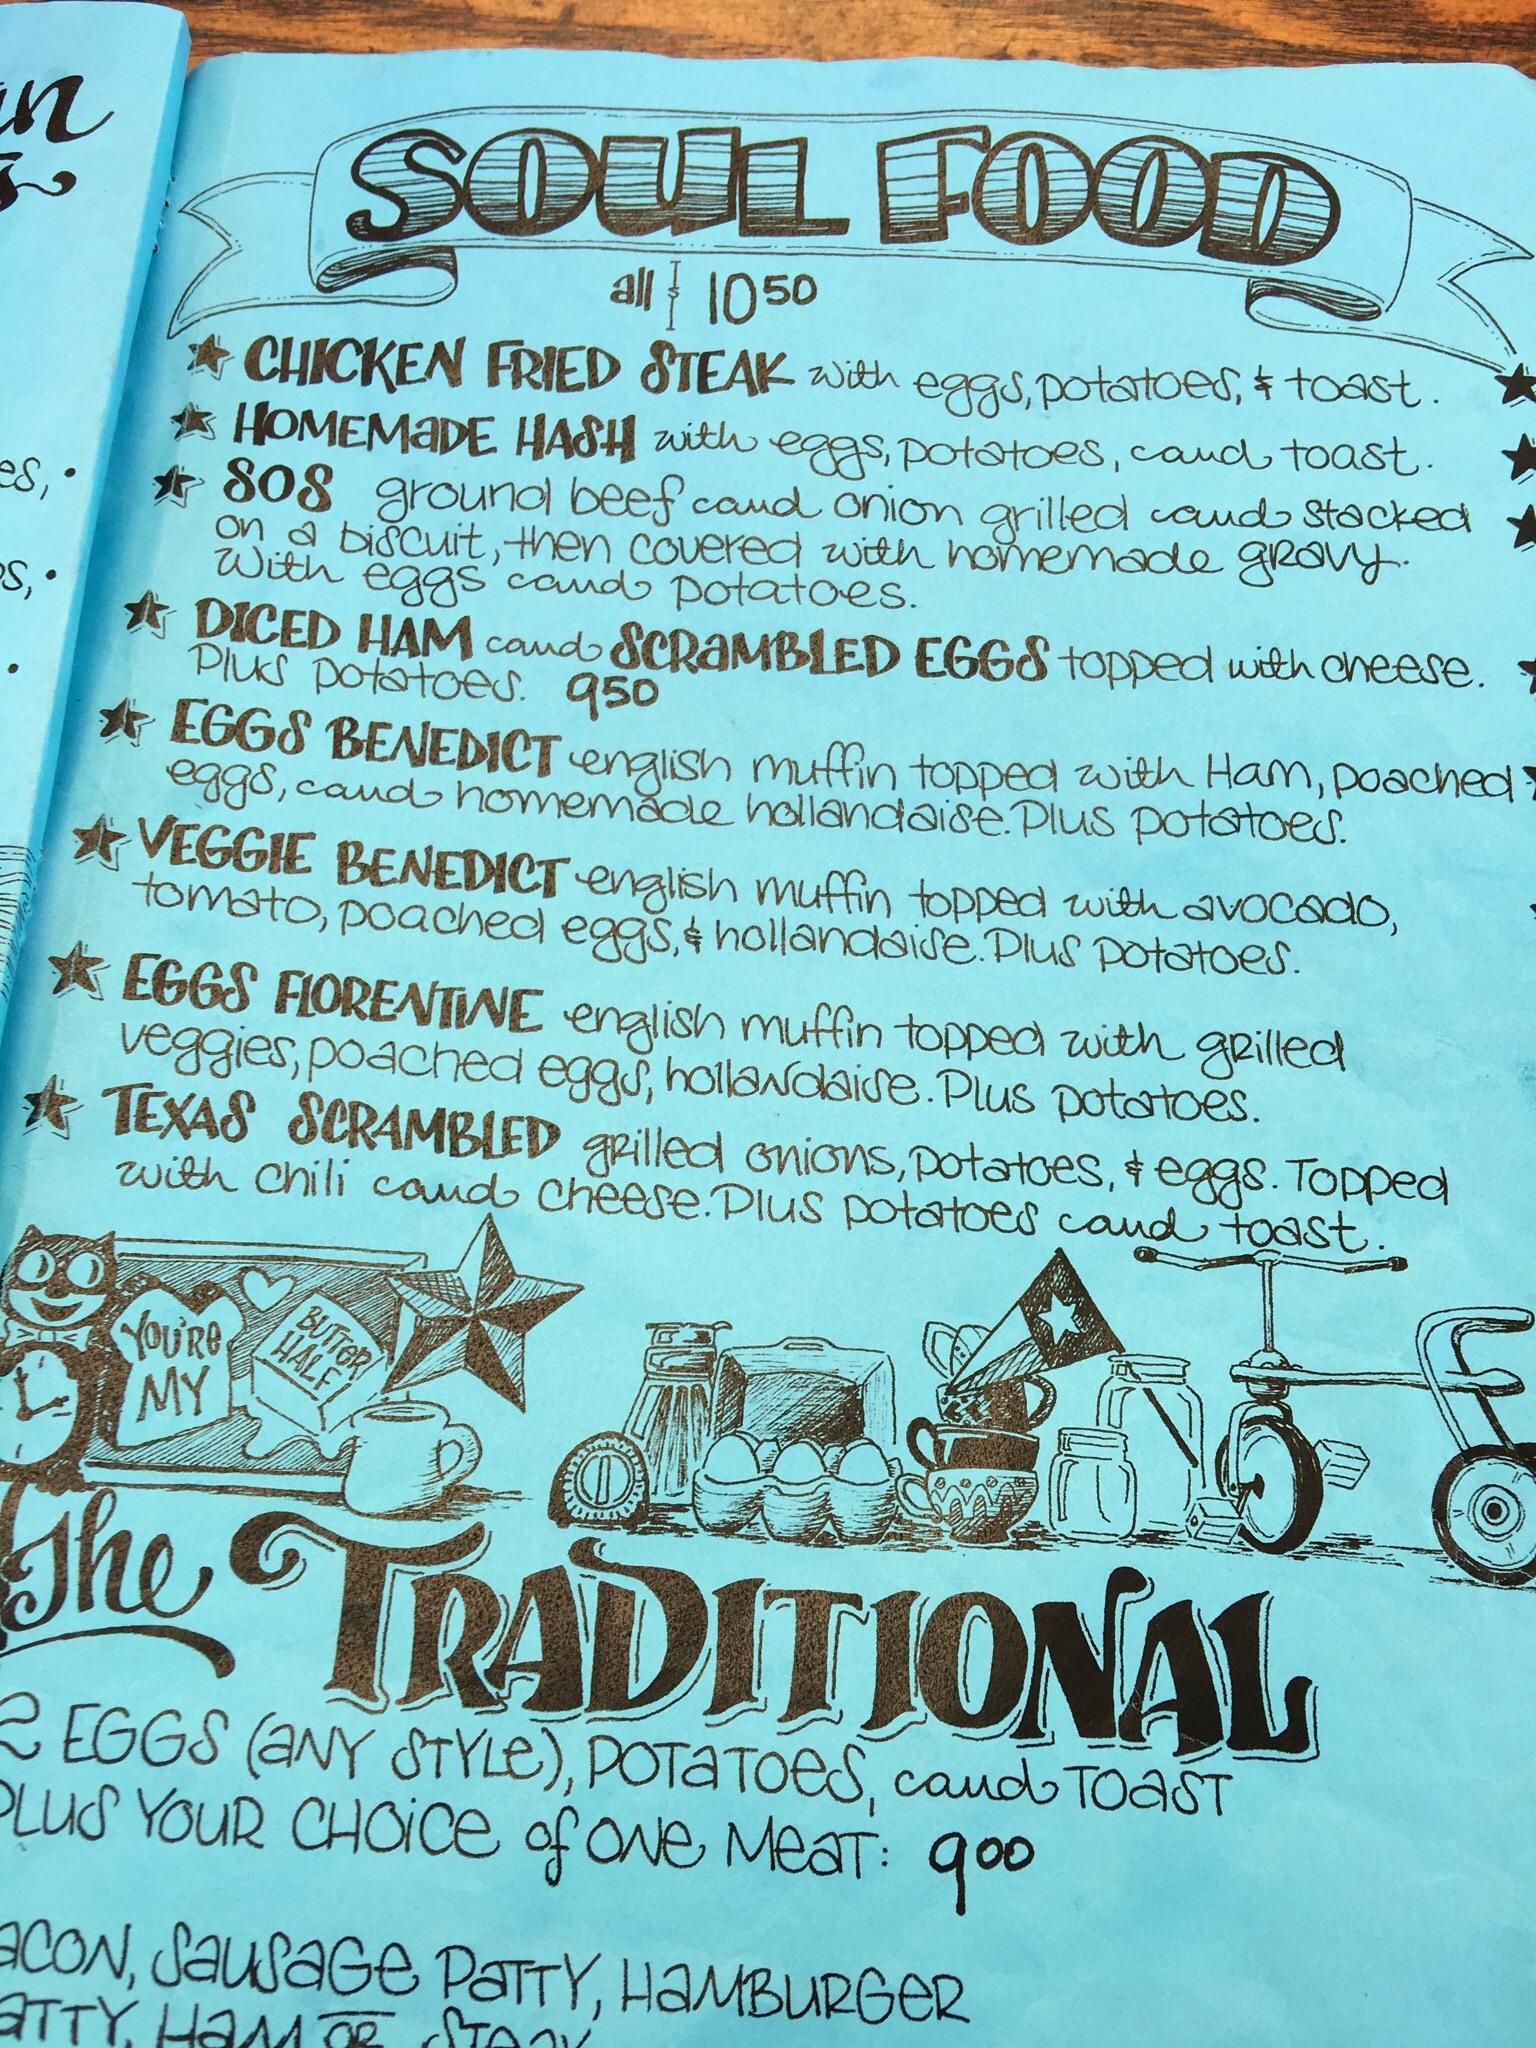 SOUL FOOD
all $ 10 50
CHICKEN FRIED STEAK with eggs, potatoes, & toast.
HOMEMADE HASH with eggs, potatoes, and toast.
SOS ground beef and onion grilled and stacked
on a biscuit, then covered with homemade gravy.
With eggs and potatoes.
DICED HAM and SCRAMBLED EGGS topped with cheese.
Plus potatoes. 950
EGGS BENEDICT english muffin topped with Ham, poached
eggs, and homemade hollandaise. Plus potatoes.
VEGGIE BENEDICT english muffin topped with avocado,
tomato, poached eggs, & hollandaise. Plus potatoes.
EGGS FLORENTINE english muffin topped with grilled
veggies, poached eggs, hollandaise. Plus potatoes.
TEXAS SCRAMBLED grilled onions, potatoes, & eggs. Topped
with chili and cheese. Plus potatoes and toast.
YOU'RE
MY
BUTTER
HALF!
The TRADITIONAL
2 EGGS (ANY STYLE), POTATOES, and TOAST
PLUS YOUR CHOICE of ONE MEAT: 900
ACON, SAUSAGE PATTY, HAMBURGER
ATTY, HAM OR STEAK